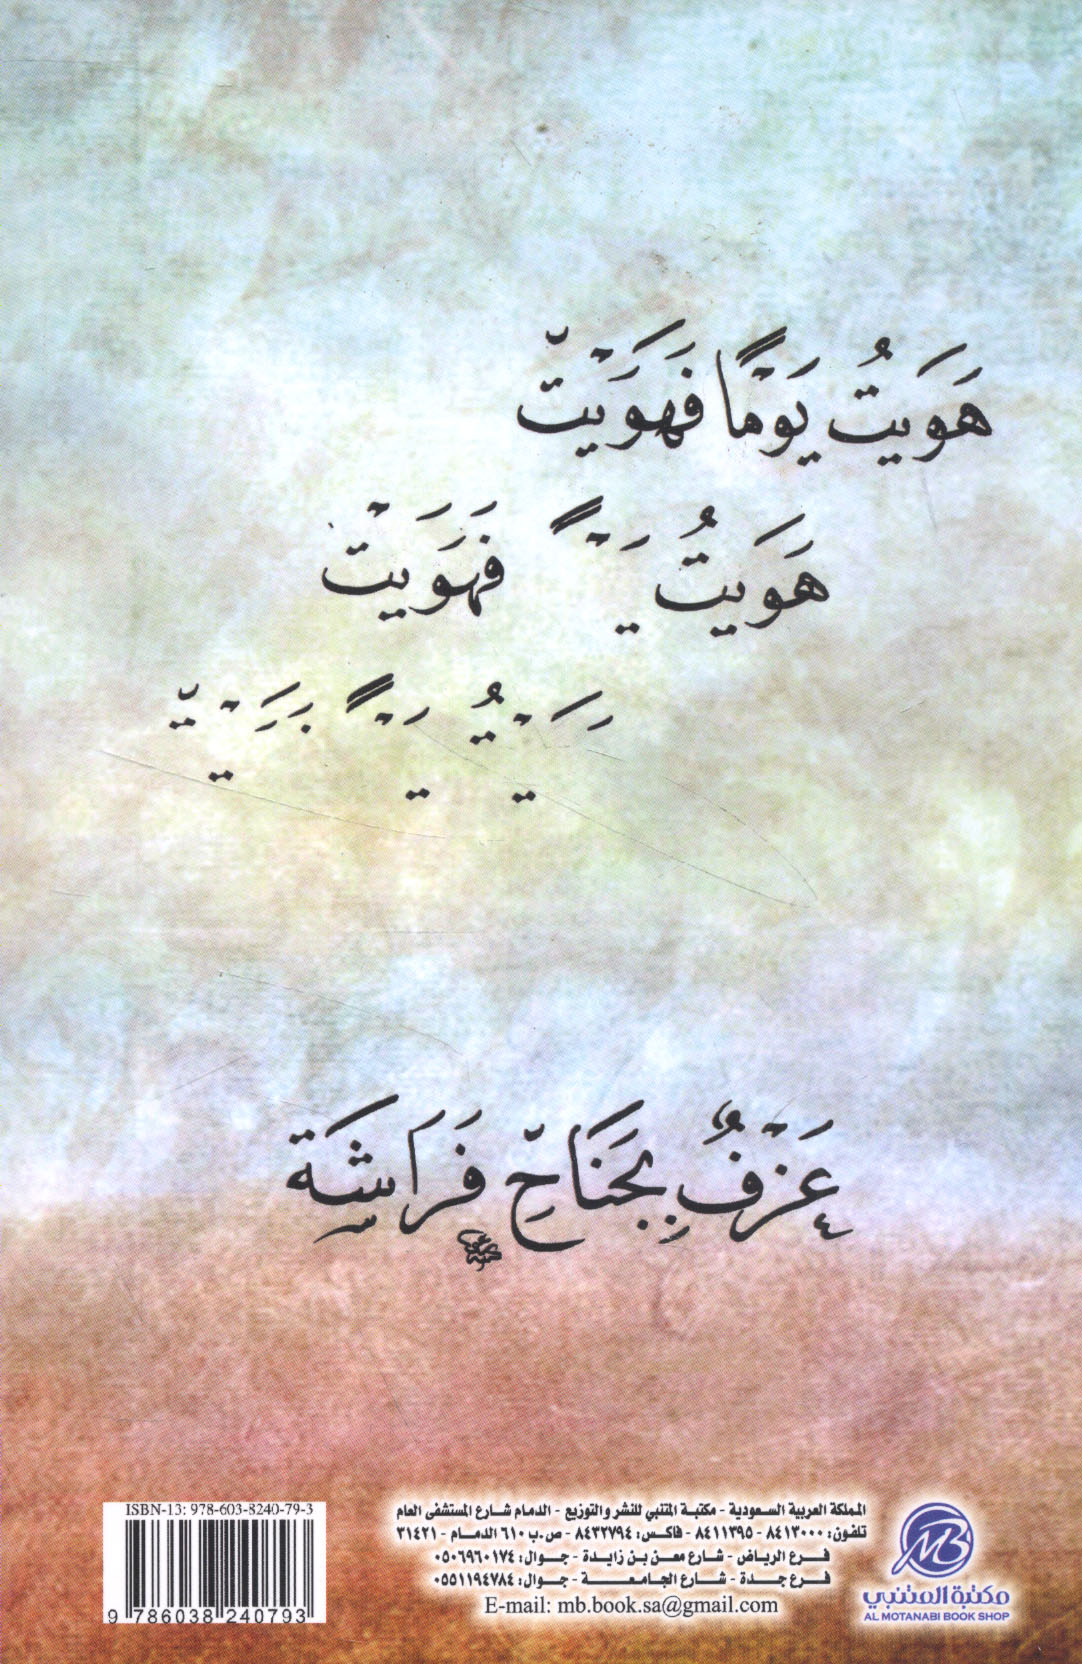 هَوَيتُ يَوْمًا فَهَوَيْتّ
هَوَيتُ فَهَوَيْتْ
عَزْفٌ بِجَنَاحِّ فَرَاشَةَ
ISBN-13: 978-603-8240-79-3
9 786038 240793
المملكة العربية السعودية - مكتبة المتنبي للنشر والتوزيع - الدمام شارع المستشفى العام
تلفون: ٨٤١٣٠٠٠ - ٨٤١١٣٩٥ - فاكس: ٨٤٣٢٧٩٤ - ص.ب ٦١٠ الدمام - ٣١٤٢١
فرع الرياض - شارع معن بن زايدة - جوال: ٠٥٠٦٩٦٠١٧٤
فرع جدة - شارع الجامعة - جوال: ٠٥٥١١٩٤٧٨٤
E-mail: mb.book.sa@gmail.com
MB
مكتبة المتنبي
AL MOTANABI BOOK SHOP